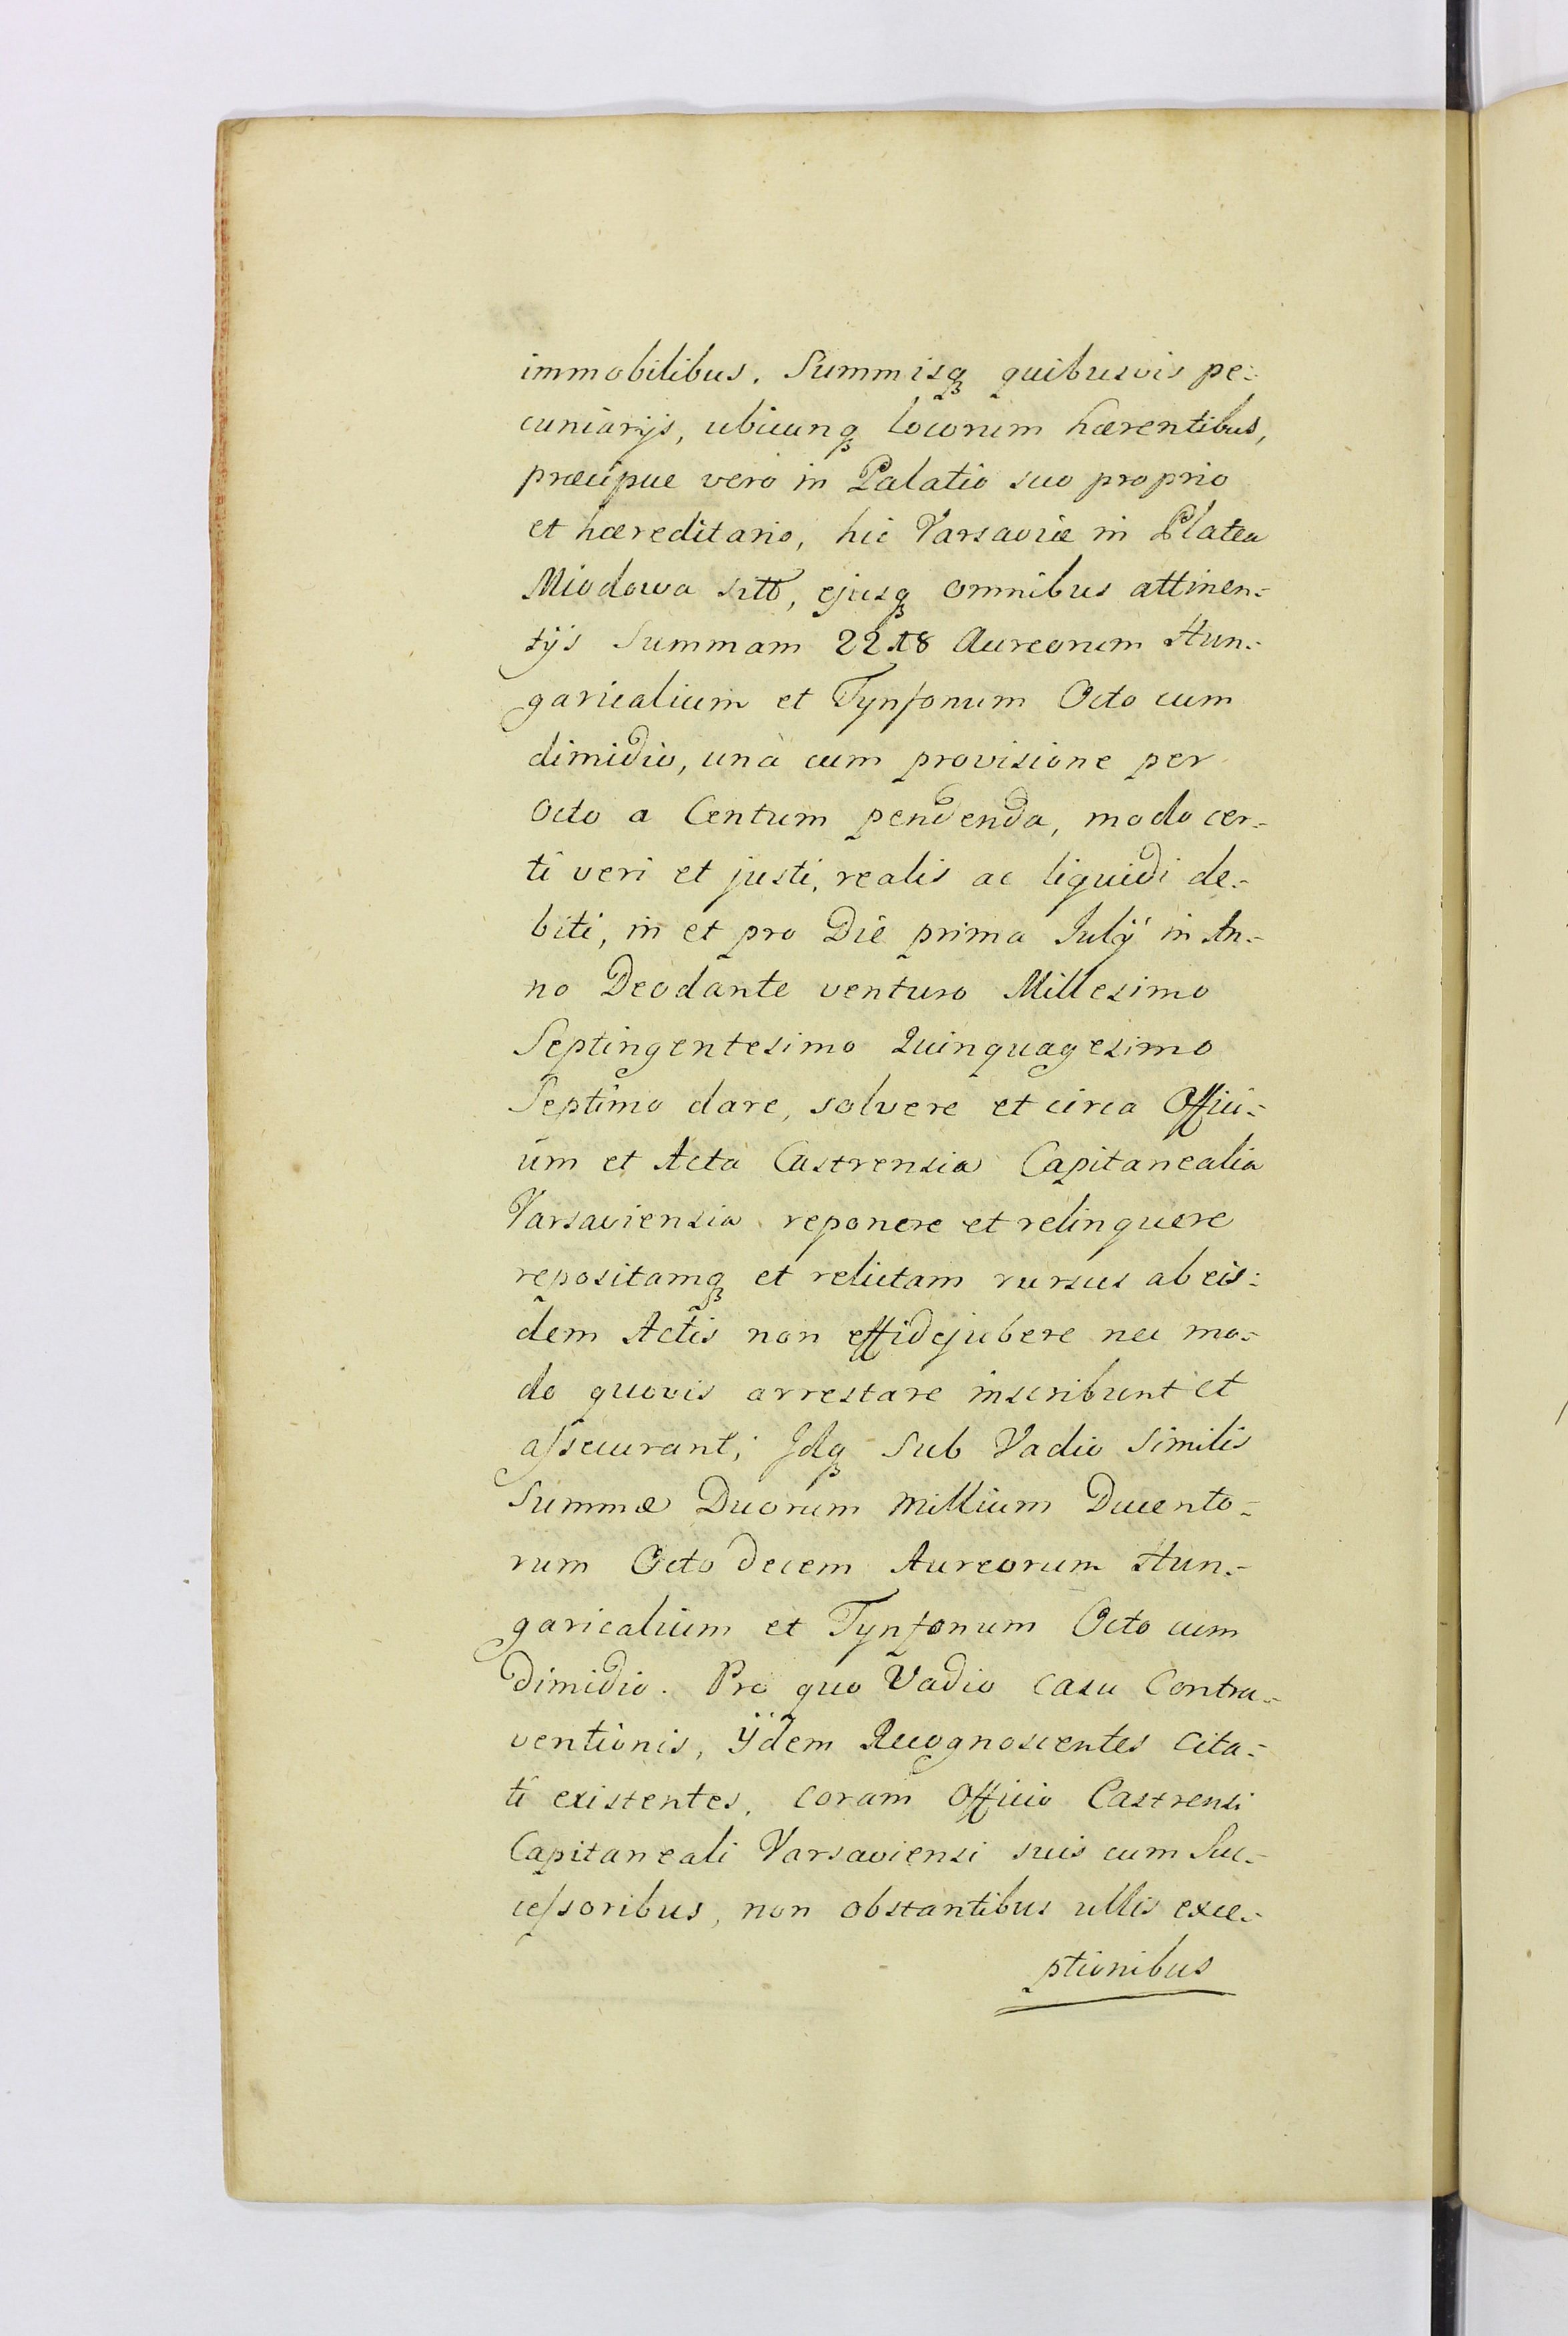 immobilibus. Summisq quibusvis pe-
cuniarijs, ubicunq locorum hærentibus,
præcipue vero in Palatio suo proprio
et hæreditario, hic Varsaviæ in Platea
Miodowa sito, ejusq omnibus attinen-
tijs Summam 2218 Aureorum Hun-
garicalium et Tynfonum Octo cum
dimidio, unà cum provisione per
Octo a Centum pendenda, modo cer-
ti veri et justi, realis ac liquidi de-
biti, in et pro Die prima Julij in An-
no Deodante venturo Millesimo
Septingentesimo Quinquagesimo
Septimo dare, solvere et circa Offici-
um et Acta Castrensia Capitanealia
Varsaviensia reponere et relinquere
repositamq et relictam rursus ab eis-
dem Actis non effidejubere nec mo-
do quovis arrestare inscribunt et
assecurant; Idq Sub Vadio Similis
Summæ Duorum Millium Ducento-
rum Octodecem Aureorum Hun-
garicalium et Tynfonum Octo cum
Dimidio. Pro quo Vadio casu Contra-
ventionis, ijdem Recognoscentes Cita-
ti existentes, coram Officio Castrensi
Capitaneali Varsaviensi suis cum Suc-
cessoribus, non obstantibus ullis exce-
ptionibus